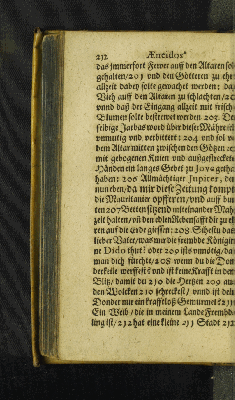 232 Æneidos
das immerfort Fewer auff den Altaren solt
gehalten/201 und den Göttern zu ehr
allzeit dabey solte gewachet werden: da
Vieh auff den Altaren zu schlachten/20
vnnd daß der Eingang allzeit mit frisch
Blumen solte bestrewet werden 203. De
selbige Jarbas ward über dieser Mähre
vernutig und verbittert: 204 und sol v
dem Altar mitten zwischen den Götzen
mit gebogenen Knien und außgestreckte
Händen ein langes Gebet zu Jove gethan
haben: 205 Allmächtiger Jupiter, de
nun eben/da mir diese Zeitung kompt
die Mauritanier opfferen/und auff bun
ten 207 Betten sitzend miteinander Mah
zeit halten/uñ den edlen Rebensafft dir zu e
ren auf die Erde giessen: 208 Sihestu das
lieber Vater/was mir die frembde Königin
ne Dido thut? oder 209 ists umnütig/da
man dich fürchte/208 wenn du die Don
derkeile werffest? und ist keine Krafft in den
Blitz/damit du 210 die Hertzen 209 auß
den Wolcken 210 schreckest/ vnnd ist dei
Donder nur ein krafftloß Gemurmel? 211
Ein Weib/ die in meinem Lande Frembd
ling ist/ 232 hat eine kleine 233 Stadt 232